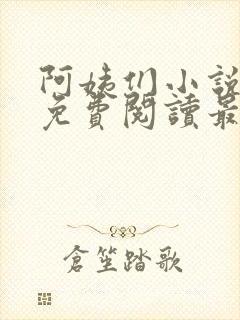 阿姨们小說
免費閱讀最
倉笙踏歌